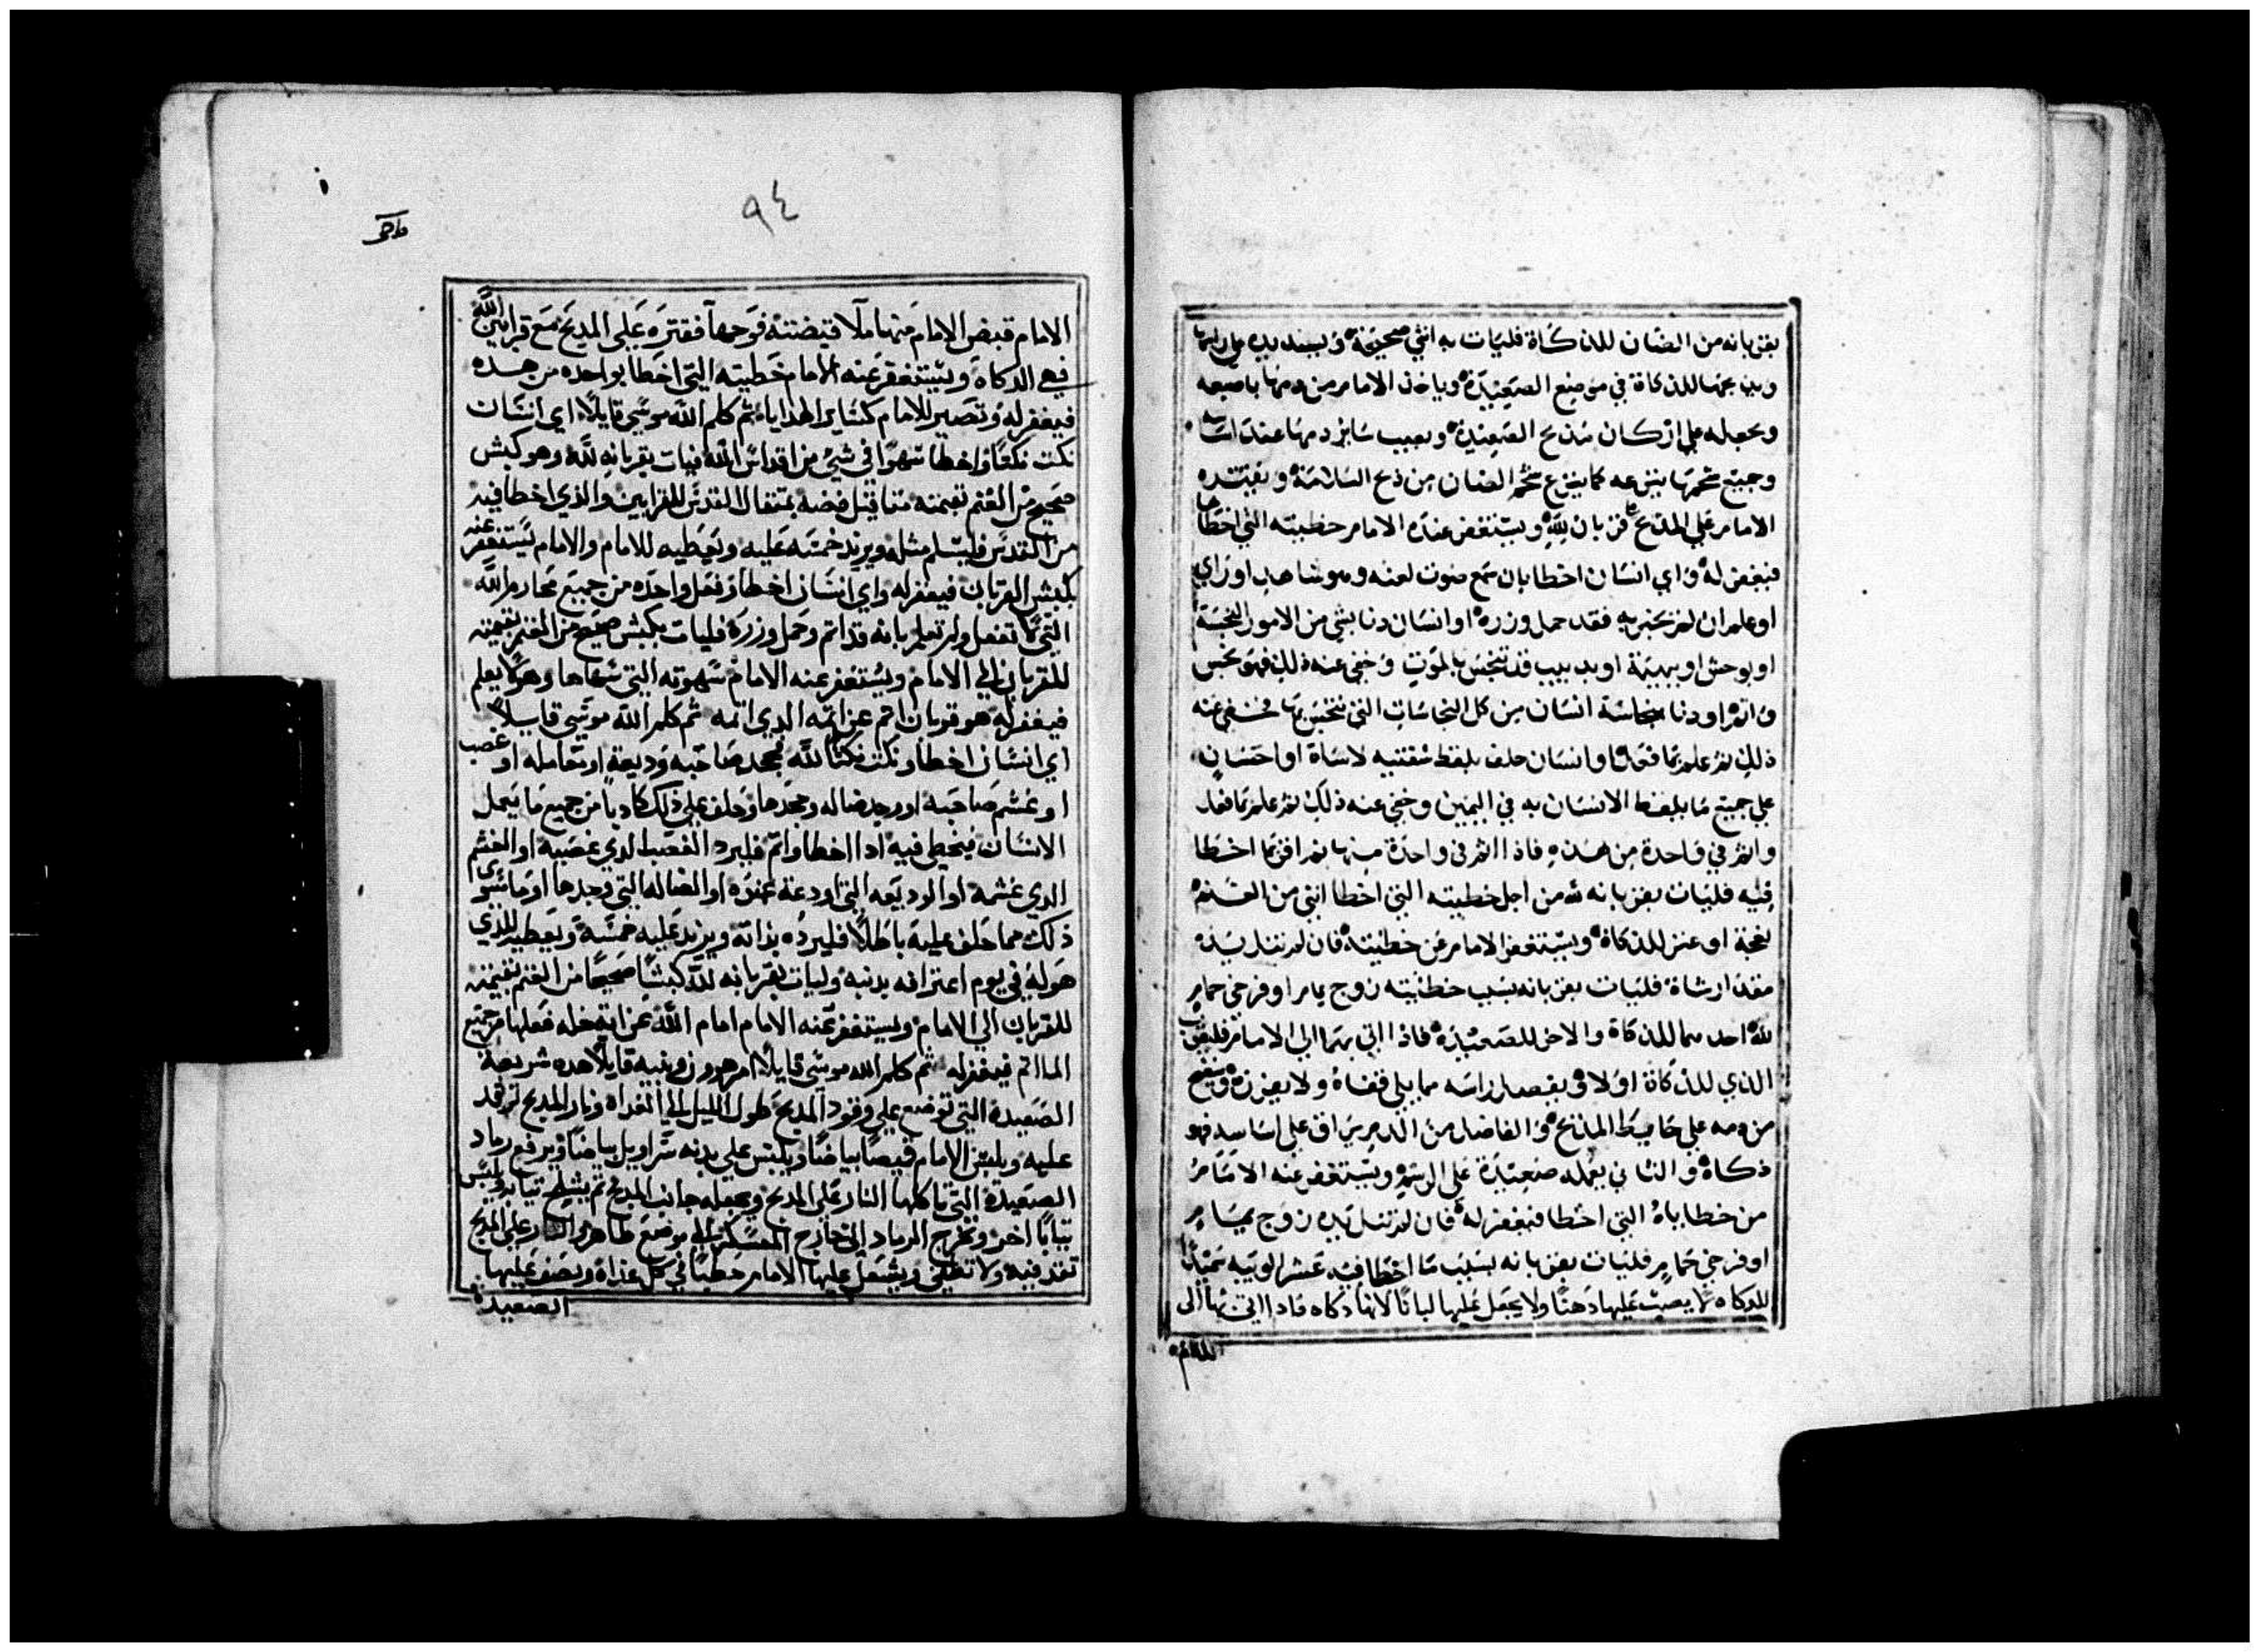 بقربانه من الضان للذكاة فليات به انثى صحيحة ويسند يده على راسها
ويذبحها للذكاة في موضع الصعيدة وياخذ الامام من دمها باصبعه
ويجعله على اركان مذبح الصعيدة ويصيب سايردمها عند اساسه
وجميع شحمها ينزعه كما ينزع شحم الضان من ذبح السلامة ويقتره
الامام على المذبح قربان لله ويستغفر عنده الامام خطيته التي اخطاها
فيغفر له واي انسان اخطا بان سمع صوت لعنه وهو شاهد او راي
او علم ان لم يخبر به فقد حمل وزره او انسان دنا بشي من الامور النجسة
او بوحش او بهيمة او بدبيب قد تنجس بالموت وخفي عنه ذلك فهو نجس
واثم او دنا بنجاسة انسان من كل النجاسات التي يتنجس بها فخفي عنه
ذلك ثم علم بما فعل او انسان حلف بلفظ شفتيه لاساة او احسان
على جميع ما يلفظ الانسان به في اليمين وخفي عنه ذلك ثم علم بما فعل
واثم في واحدة من هذه فاذا اثم في واحدة منها ثم اقر بما اخطا
فيه فليات بقربانه لله من اجل خطيته التي اخطا انثي من الغنم
نعجة او عنز للذكاة ويستغفر الامام عن خطيته فان لم تنل يده
مقدار شاة فليات بقربانه بسبب خطيته زوج يمام او فرخي حمام
لله احدهما للذكاة والاخر للصعيدة فاذا اتي بهما الي الامام فليقرب
الذي للذكاة اولا ويفصل راسه مما يلي قفاه ولا يفرزه وينضح
من دمه على حايط المذبح والفاضل من الدم يراق على اساسه فهو
ذكاة والثاني يعمله صعيدة على الرسم ويستغفر عنه الامام
من خطاياه التي اخطا فيغفر له فان لم تنل يده زوج يمام
او فرخي حمام فليات بقربانه بسبب ما اخطا فيه عشر الويبه سميدا
للدكاه لا يصب عليها دهنا ولا يجعل عليها لبانا لانها دكاه فادا اتي بها الي
الامام
٩٤
الامام قبض الامام منها ملا قبضته فوحها فقتره على المدبح مع قرابين الله
فهي الدكاه ويستغفر عنه الامام خطيته التي اخطا بواحده من هده
فيغفر له وتصير للامام كساير الهدايا ثم كلم الله موسى قايلا اي انسان
نكث نكثا واخطا سهوا في شي من اقداس الله فيات بقربانه لله وهو كبش
صحيح من الغنم تقيمته مثاقيل فضه بمثقال القدس للقرابين والذي اخطا فيه
من القدس فليسلم مثله ويزيد خمسه عليه ويعطيه للامام والامام يستغفر عنه
بكبش القربان فيغفر له واي انسان اخطا وفعل واحده من جميع محارم الله
التي لا تفعل ولم تعلم بانه قد اثم وحمل وزره فليات بكبش صحيح من الغنم بقيمته
للقربان الي الامام ويستغفر عنه الامام سهوته التي سهاها وهو لا يعلم
فيغفر له هو قربان اثم عن اثمه الدي اثمه ثم كلم الله موسى قايلا
اي انسان اخطا ونكث نكثا لله فجحد صاحبه وديعة او تحامله او غصب
او غشم صاحبه او وجد ضاله وجحدها وحلف على ذلك كادبا من جميع ما يعمل
الانسان فيخطي فيه ادا اخطا واثم فليرد الغصب الدي غصبه او الغشم
الدي غشمه او الوديعه التي اودعة عنده او الضاله التي وجدها او ما سوى
ذلك مما حلف عليه باطلا فليرده بذاته ويزيد عليه خمسة ويعطيه للذي
هو له في يوم اعترافه بدنبه وليات بقربانه لله كبشا صحيحا من الغنم بقيمته
للقربان الي الامام ويستغفر عنه الامام امام الله عن اية خله فعلها من جميع
الماثم فيغفر له ثم كلم الله موسى قايلا امر هرون وبنيه قايلا هده شريعة
الصعيدة التي توضع على وقود المدبح طول الليل الي الغداه ونار المدبح توقد
عليه ويلبس الامام قميصا بياضا ويلبس على بدنه سراويل بياضا ويرفع رماد
الصعيدة التي تاكلها النار على المدبح ويجعله جانب المدبح ثم يشلح ثيابه ويلبس
ثيابا اخر ويخرج الرماد الى خارج العسكر الى موضع طاهر والنار على المدبح
تقد فيه ولا تطفى ويشعل عليها الامام حطبا في كل غداة ويصف عليها
الصعيدة